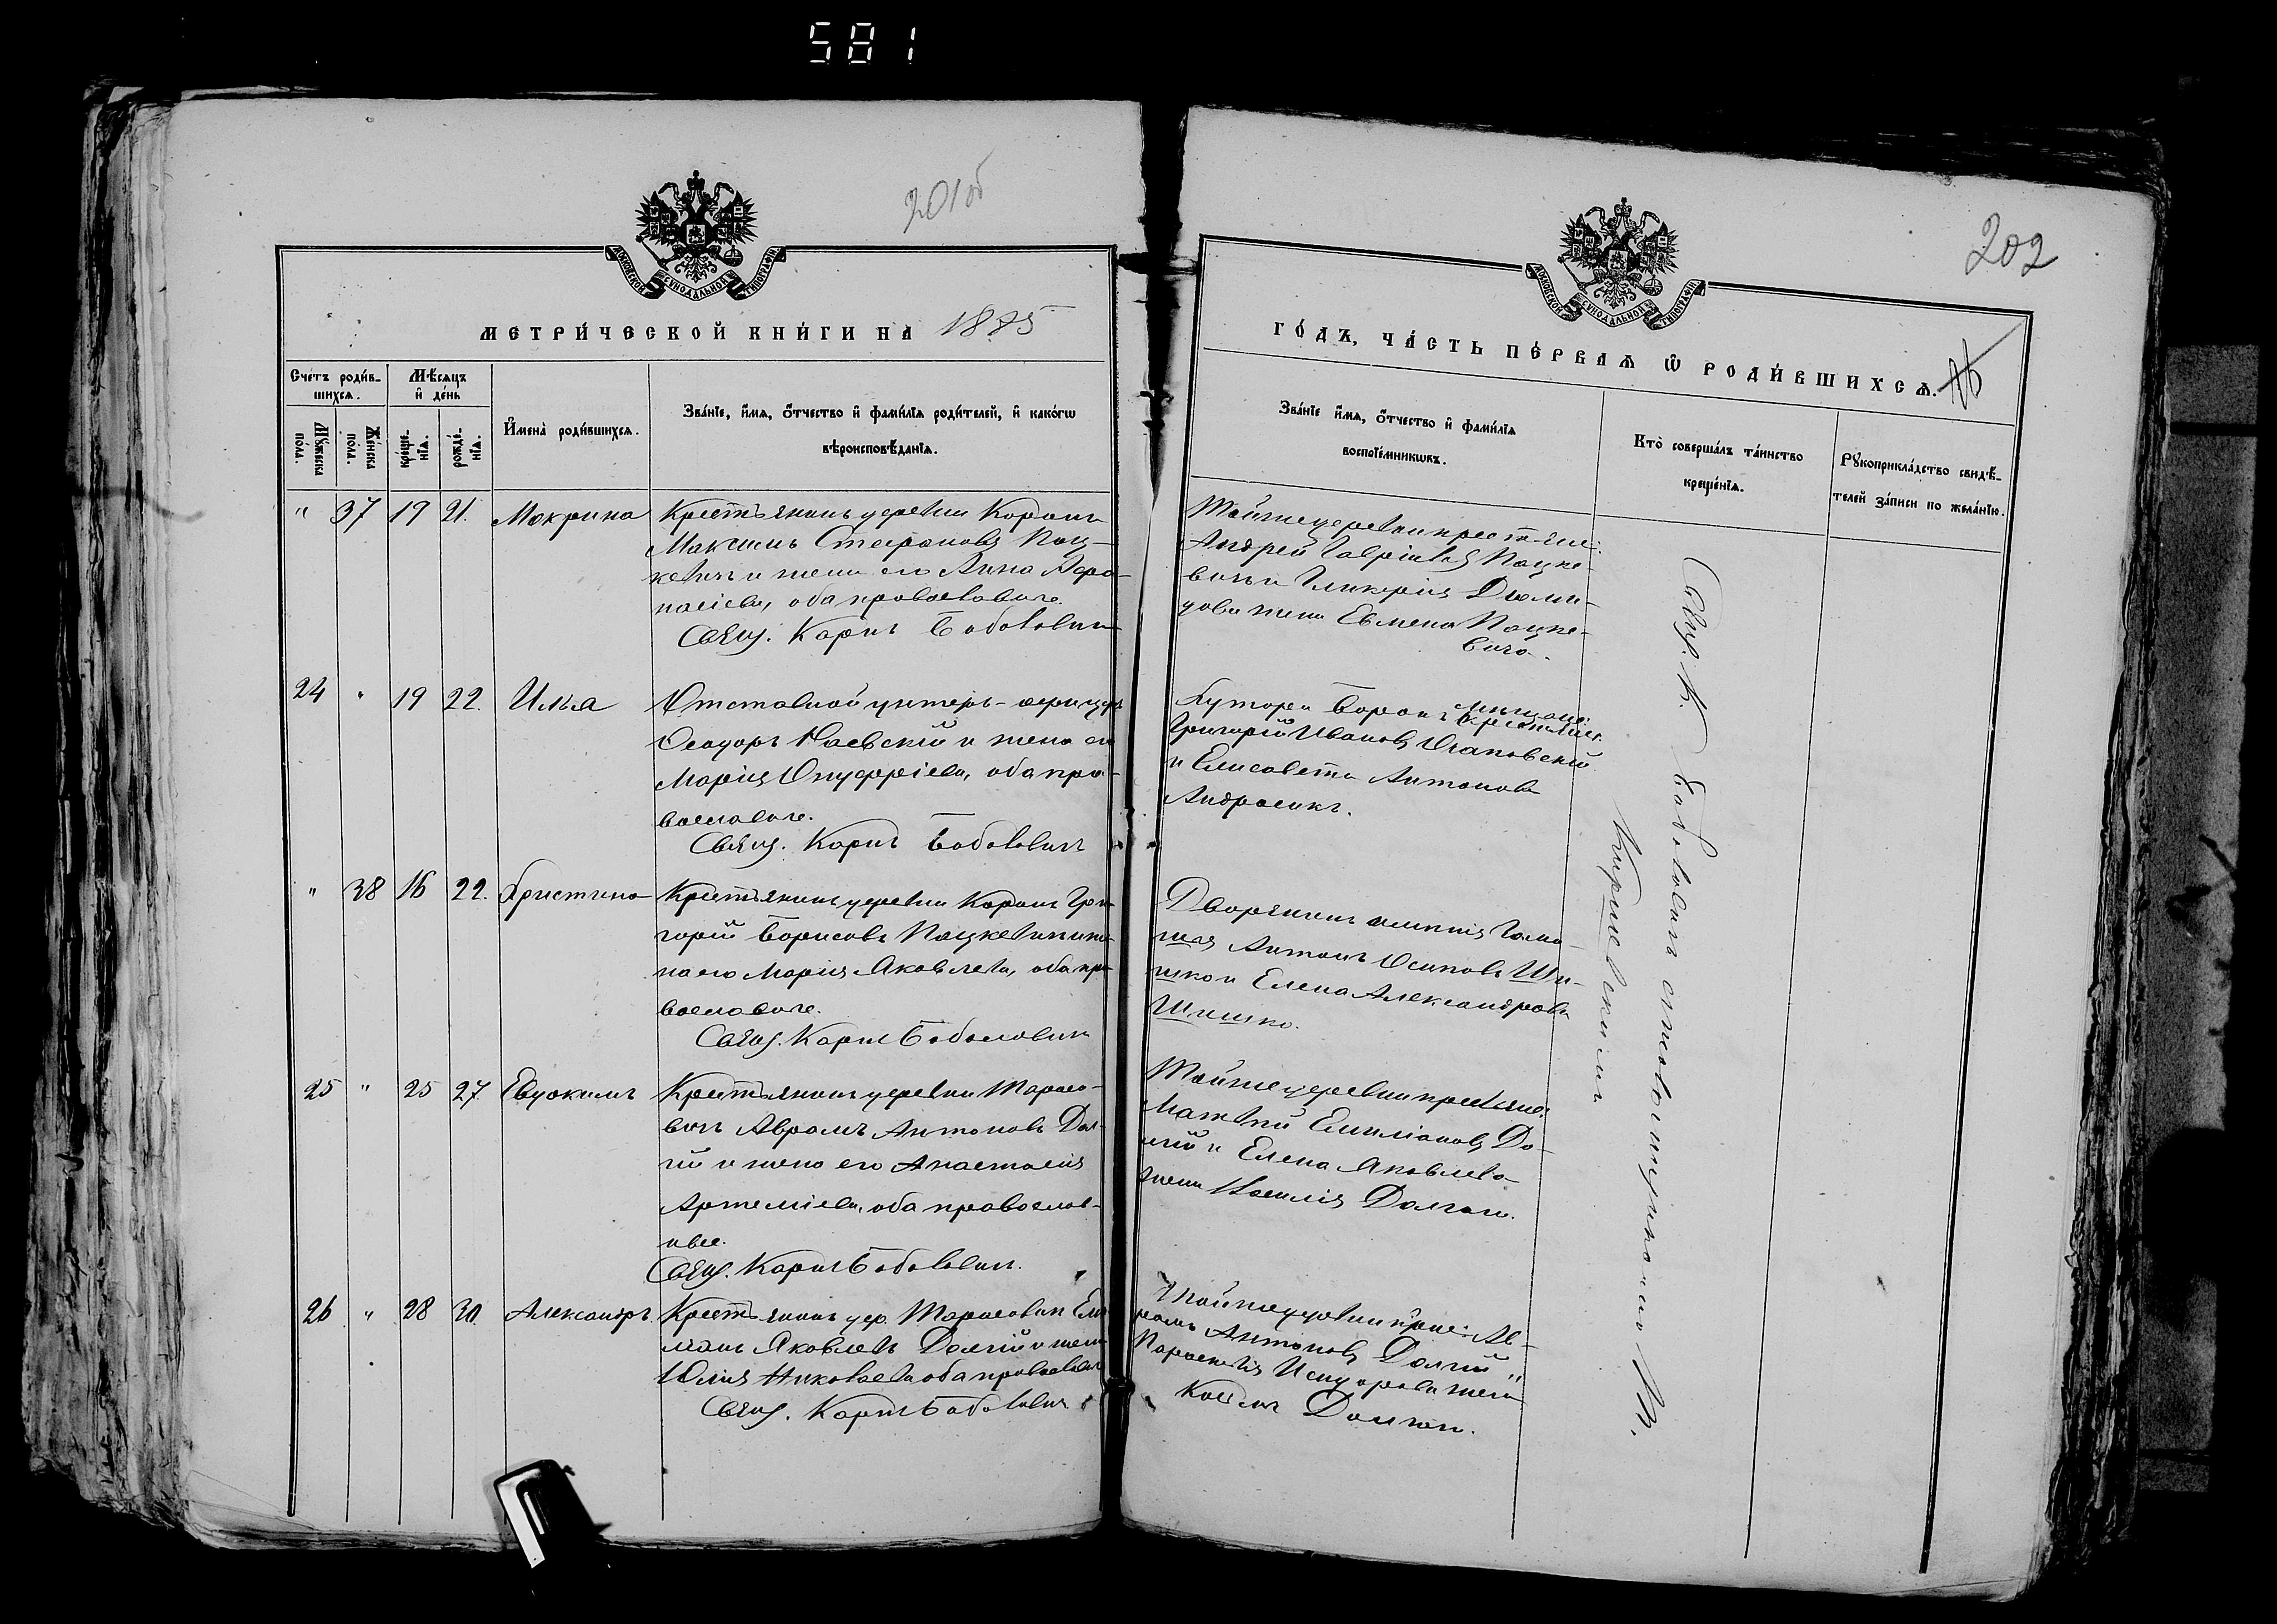 581
201об
МОСКОВСКОЙ СѴНОДАЛЬНОЙ ТИПОГРАФІИ
МЕТРИ́ЧЕСКОЙ КНИ́ГИ НА 1885
Сче́тъ роди́в-
шихсѧ.
Мꙋ́жеска
пола.
Же́нска
пола.
Мѣ́сѧцъ
и҆ де́нь
креще́-
нїѧ.
рожде́-
нїѧ.
И҆мена̀ роди́вшихсѧ.
Зва́нїе, и҆́мѧ, ѻ҆́тчество и҆ фами́лїѧ роди́телей, и҆ како́гѡ
вѣроисповѣ́данїѧ.
" 37 19 21. Макрина
Крестьянинъ деревни Коронъ
Максимъ Стефановъ Пац-
кевичъ и жена его Анна Афа-
насіева, оба православные.
Свящ. Карпъ Боболович
24 " 19 22. Илья
Отставной унтеръ-офицеръ
Ѳеодоръ Раевскій и жена его
Марія Онуфріева, оба пра-
вославные.
Свящ. Карпъ Боболовичъ
" 38 16 22. Христина
Крестьянинъ деревни Коронъ Гри-
горій Борисовъ Пацкевичъ и же-
на его Марія Яковлева, оба пра-
вославные.
Свящ. Карпъ Боболович
25 " 25 27 Евдокимъ
Крестьянинъ деревни Тарасо-
вичъ Аврамъ Антоновъ Дол-
гій и жена его Анастасія
Артеміева, оба православ-
ные.
Свящ. Карпъ Боболович.
26 " 28 30. Александръ.
Крестьянинъ дер. Тарасович Ели-
Яковлевъ Долгій и жена
Юлія Николаева оба православные
Свящ. Карпъ Боболович
202
МОСКОВСКОЙ СѴНОДАЛЬНОЙ ТИПОГРАФІИ
ГО́ДЪ, ЧА́СТЬ ПЕ́РВАѦ Ѡ҆ РОДИ́ВШИХСѦ.
Зва́нїе и҆́мѧ, ѻ҆́тчество и҆ фами́лїѧ
воспрїе́мникѡвъ.
Кто̀ соверша́лъ та́инство
креще́нїѧ.
Рꙋкоприкла́дство свидѣ́-
телей за́писи по жела́нїю.
Той же деревни крестьяне:
Андрей Гавріиловъ Пацке-
вичъ и Гликерія Дiоми-
дова жена Евмена Пацке-
вича.
Хутора Боронъ мещане:
Григорій Ивановъ
и Елисавета Антонова
Андросикъ.
Дворянинъ имѣнія
Антонъ Осиповъ Ши-
шко и Елена Александрова
Шишко.
Той же деревни крестьяне:
Матвѣй Емиліановъ До-
лгій и Елена Яковлева
жена Василія Долгаго.
Той же деревни крес: Ав-
рамъ Антоновъ Долгій и
Параскевія Исидорова жена
Долгаго.
Свящ. К. Боболович с псаломщикомъ